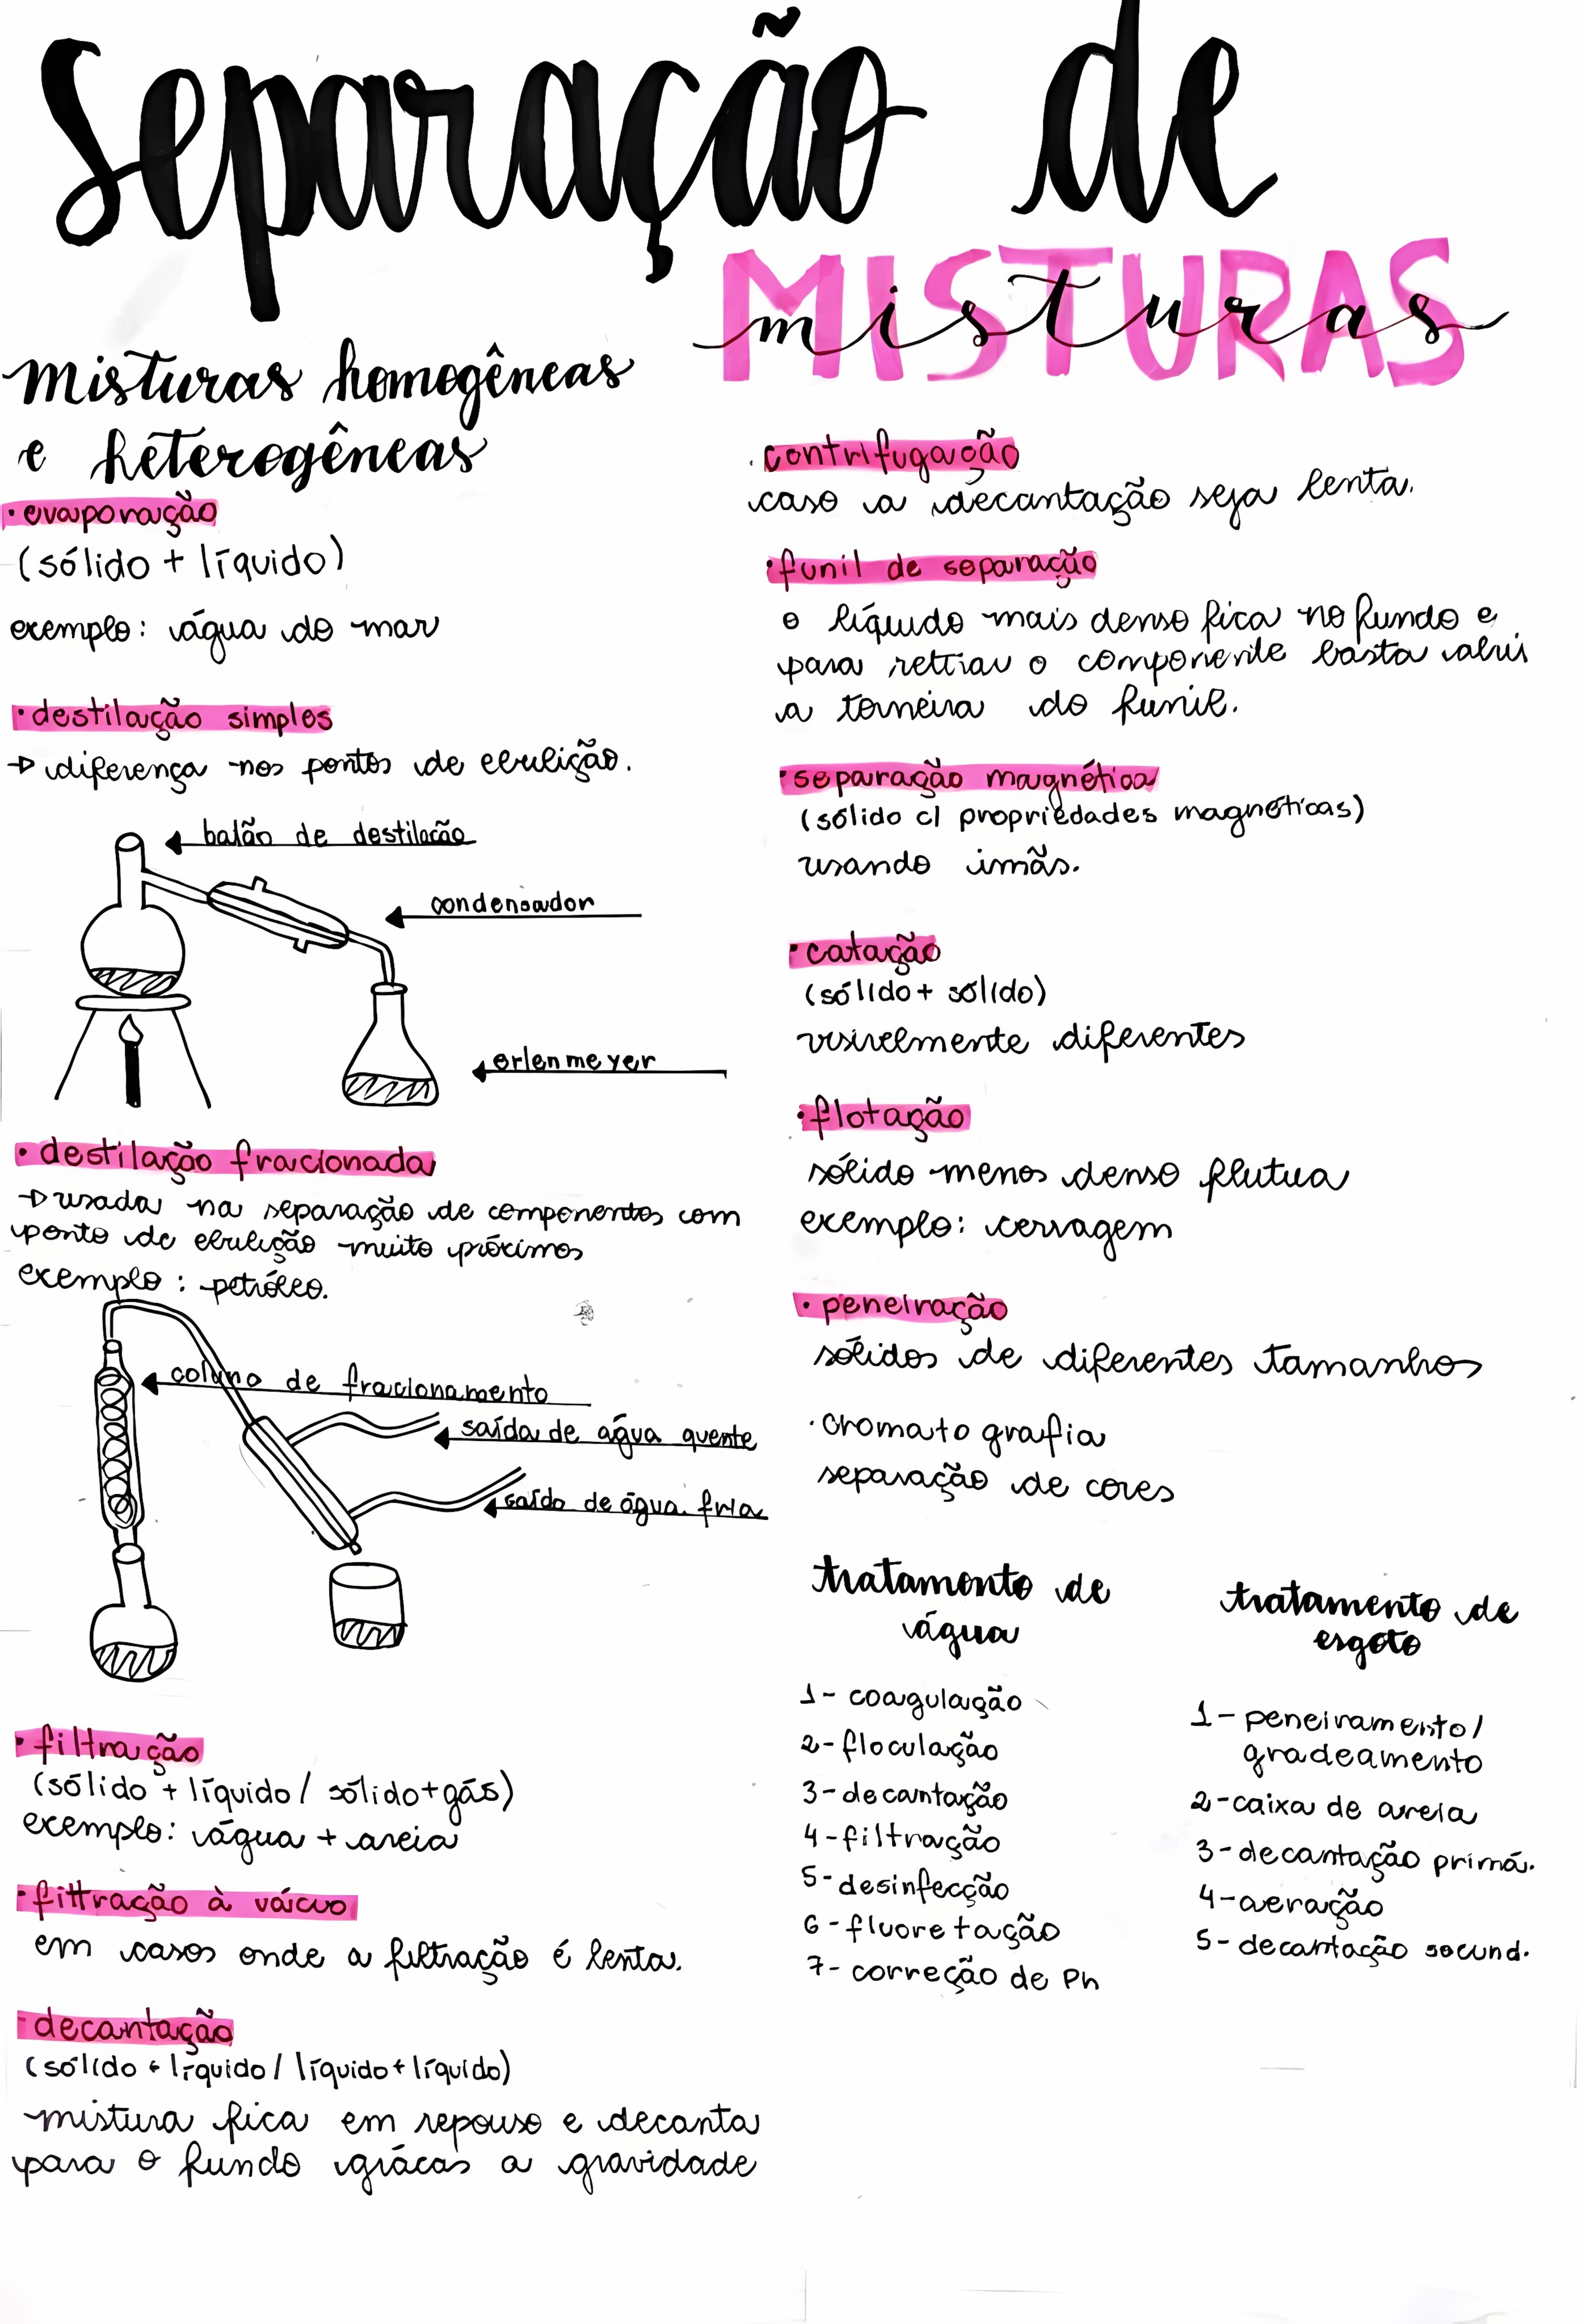 Separação de
MISTURAS
misturas
misturas homogêneas
e heterogêneas
• evaporação
(sólido + líquido)
exemplo: água do mar
• destilação simples
→ diferença nos pontos de ebulição.
balão de destilacão
condensador
erlenmeyer
• destilação fracionada
→ usada na separação de componentes com
ponto de ebulição muito próximos
exemplo: petróleo.
coluna de fracionamento
saída de água quente
saída de água fria
• filtração
(sólido + líquido / sólido+gás)
exemplo: água + areia
• filtração à vácuo
em casos onde a filtração é lenta.
• decantação
(sólido + líquido / líquido + líquido)
mistura fica em repouso e decanta
para o fundo grácas a gravidade
• contrifugação
caso a decantação seja lenta.
• funil de separação
o líquido mais denso fica no fundo e
para rettiar o componente basta abrir
a torneira do funil.
• separação magnética
(sólido c/ propriedades magnéticas)
usando imãs.
• catação
(sólido + sólido)
visivelmente diferentes
• flotação
sólido menos denso flutua
exemplo: cervagem
• peneiração
sólidos de diferentes tamanhos
• cromatografia
separação de cores
tratamento de
água
1- coagulação
2- floculação
3- decantação
4- filtração
5- desinfecção
6- fluoretação
7- correção de Ph
tratamento de
esgoto
1- peneiramento/
gradeamento
2- caixa de areia
3- decantação primá.
4- aeração
5- decantação secund.